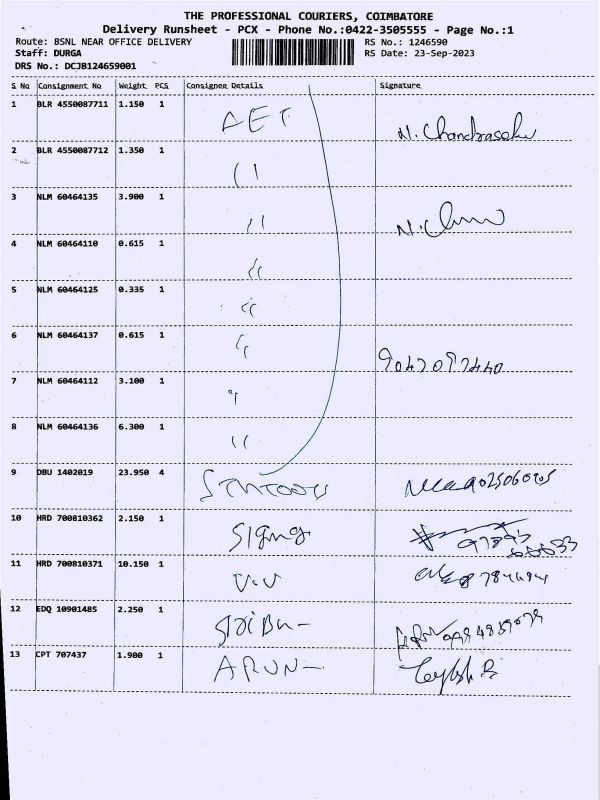 THE PROFESSIONAL COURIERS, COIMBATORE
Delivery Runsheet - PCX - Phone No.:0422-3505555 - Page No.:1
Route: BSNL NEAR OFFICE DELIVERY RS No.: 1246590
Staff: DURGA RS Date: 23-Sep-2023
DRS No.: DCJB124659001
S No Consignment No Weight PCS Consignee Details Signature
1 BLR 4550087711 1.150 1 AET N. Chandraseka
2 BLR 4550087712 1.350 1 "
3 NLM 60464135 3.900 1 "
4 NLM 60464110 0.615 1 "
5 NLM 60464125 0.335 1 "
6 NLM 60464137 0.615 1 " 9047097440
7 NLM 60464112 3.100 1 "
8 NLM 60464136 6.300 1 "
9 DBU 1402019 23.950 4
10 HRD 700810362 2.150 1
11 HRD 700810371 10.150 1 V.V
12 EDQ 10901485 2.250 1
13 CPT 707437 1.900 1 ARUN-